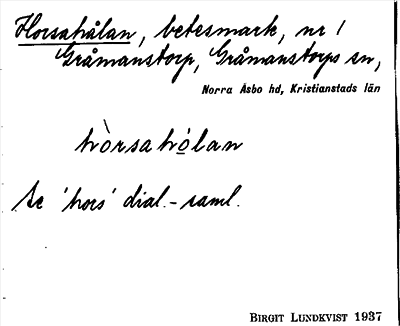 Horsahålan, betesmark, nr 1
Gråmanstorp, Gråmanstorps sn,
Norra Åsbo hd, Kristianstads län
hòrsahò̜lan
Se 'hors' dial.-saml.
BIRGIT LUNDKVIST 1937